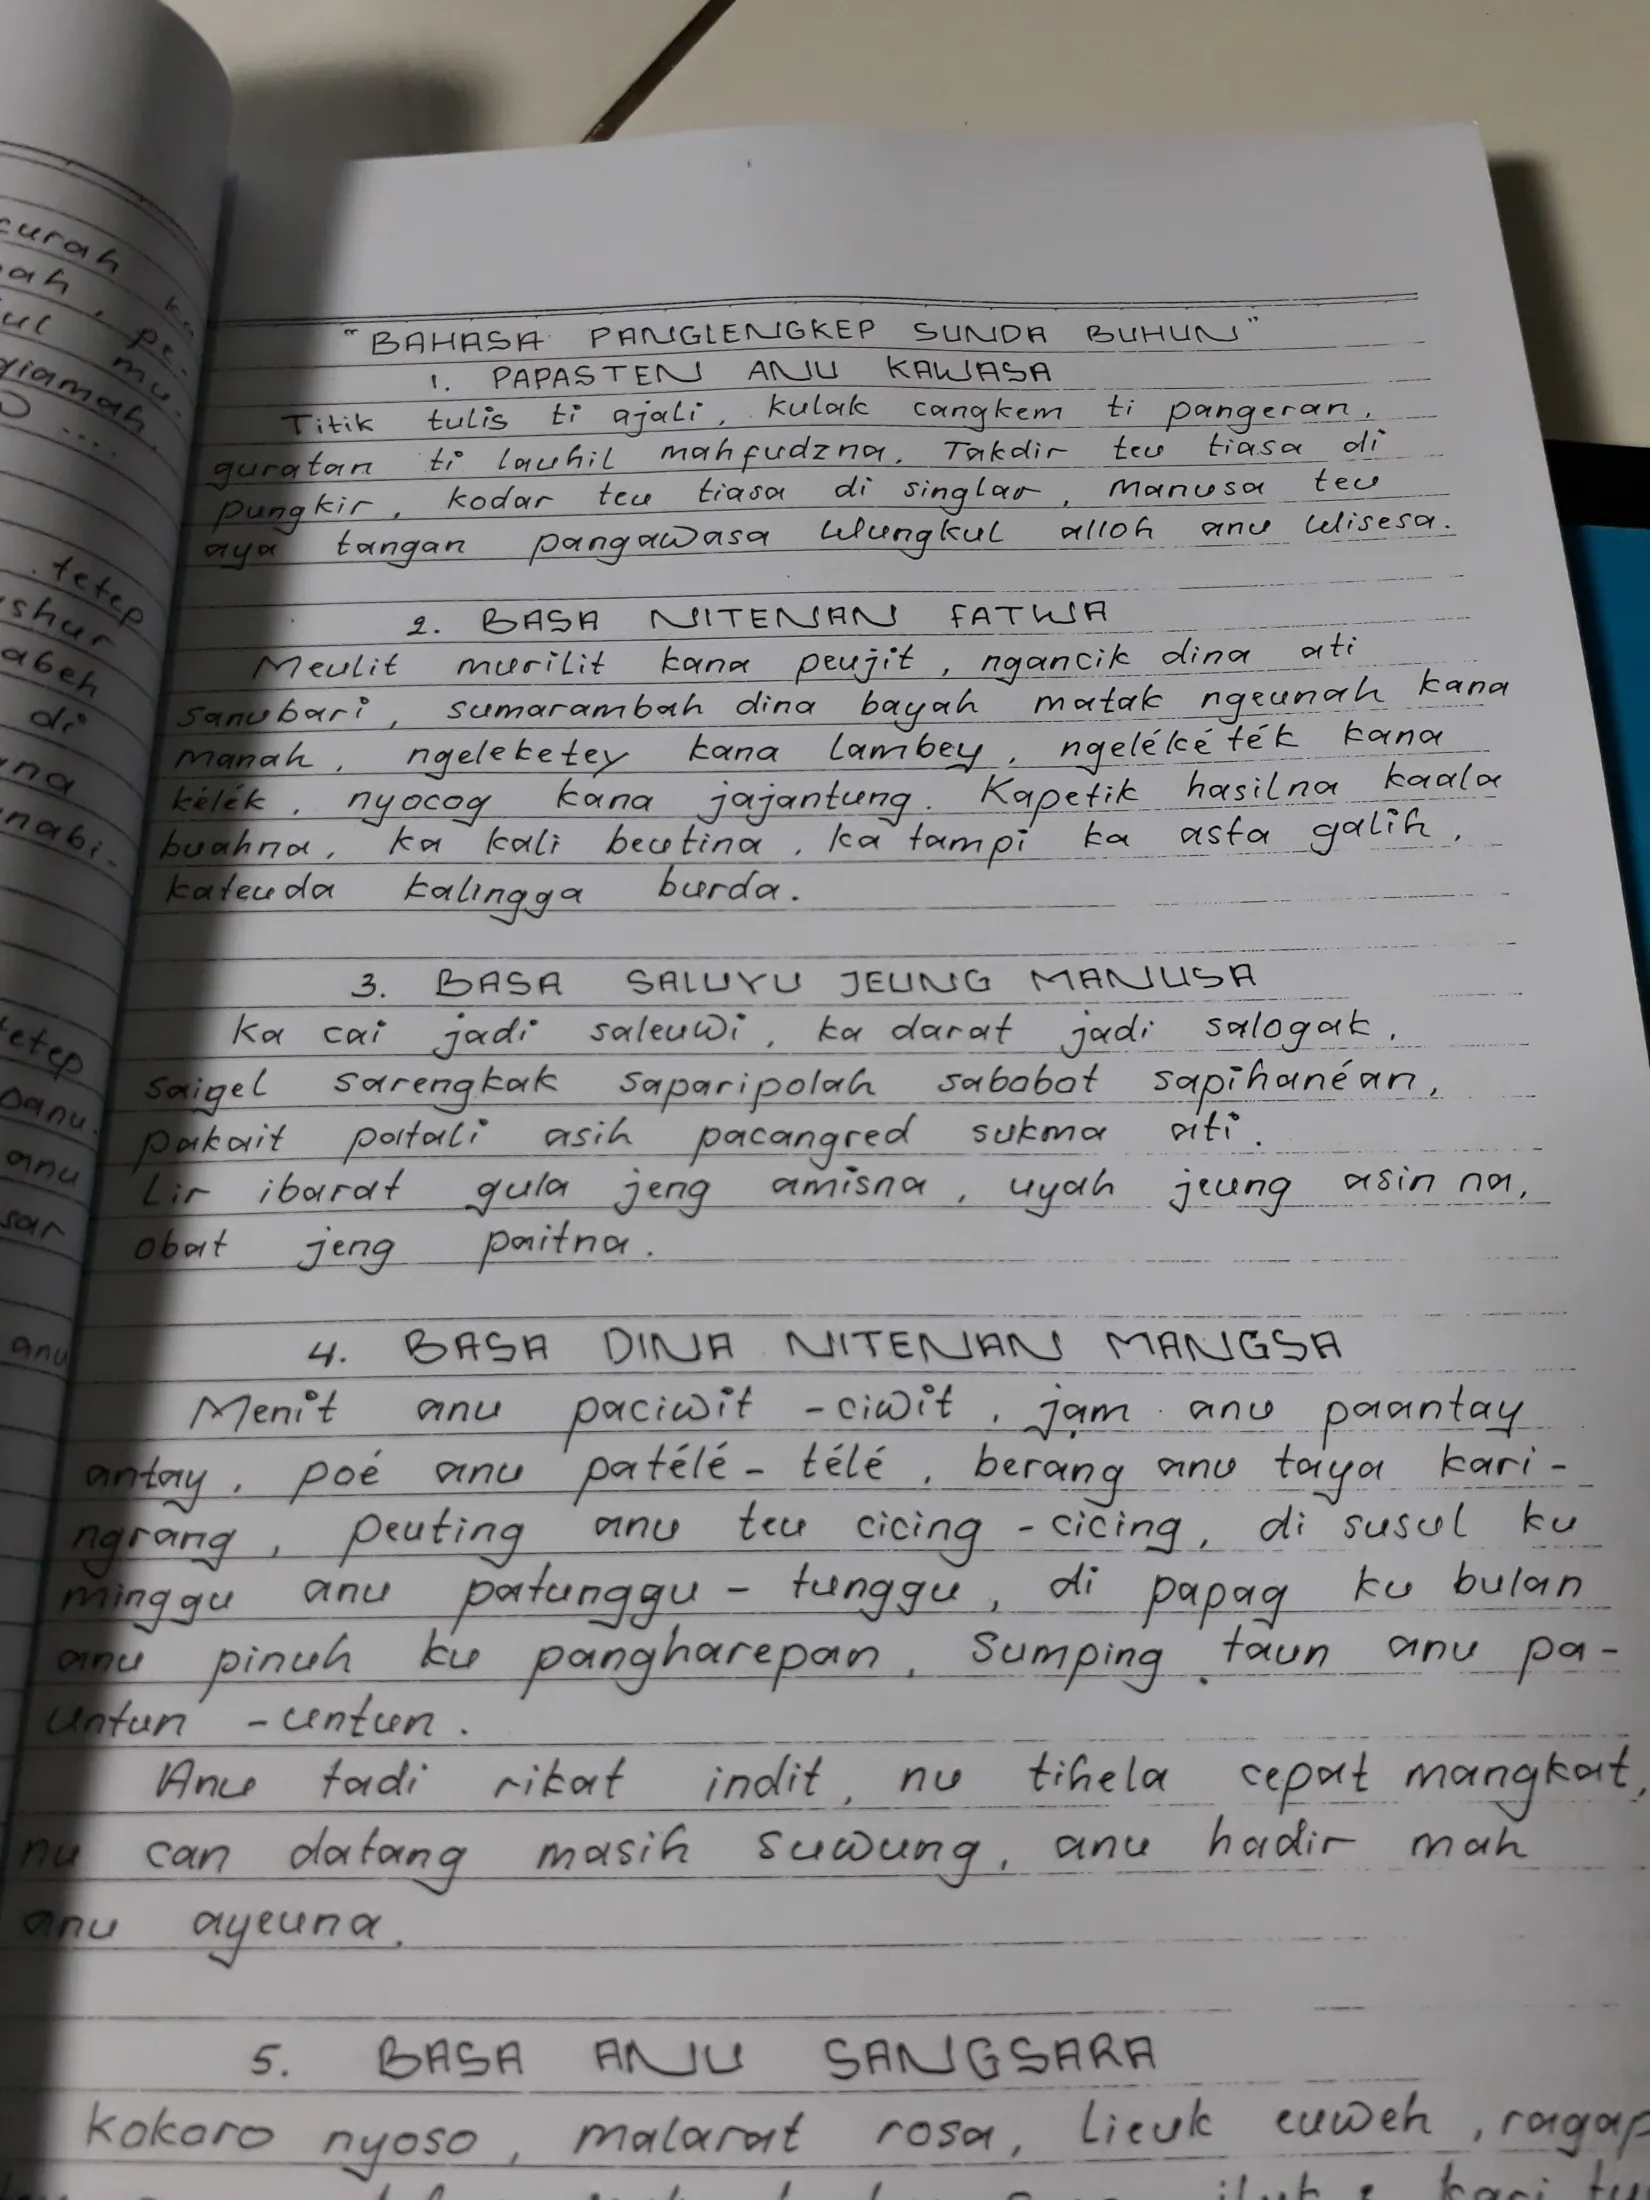 curah ka
ah, pe-
ul mu-
giamah
...
. tetep
shur
abeh
di
na
nabi-
tetep
panu.
anu
sar
anu
"BAHASA PANGLENGKEP SUNDA BUHUN"
1. PAPASTEN ANU KAWASA
Titik tulis ti ajali, kulak cangkem ti pangeran,
guratan ti lauhil mahfudzna. Takdir teu tiasa di
pungkir, kodar teu tiasa di singlar, manusa teu
aya tangan pangawasa wungkul alloh anu wisesa.
2. BASA NITENAN FATWA
Meulit murilit kana peujit, ngancik dina ati
sanubari, sumarambah dina bayah matak ngeunah kana
manah, ngeleketey kana lambey, ngeléké ték kana
kélék, nyocog kana jajantung. Kapetik hasilna kaala
buahna, ka kali beutina, ka tampi ka asta galih,
kateuda kalingga burda.
3. BASA SALUYU JEUNG MANUSA
Ka cai jadi saleuwi, ka darat jadi salogak,
saigel sarengkak saparipolah sabobot sapihanéan,
pakait patali asih pacangred sukma ati.
Lir ibarat gula jeng amisna, uyah jeung asin na,
obat jeng paitna.
4. BASA DINA NITENAN MANGSA
Menit anu paciwit -ciwit, jam anu paantay
antay, poé anu patélé - télé, berang anu taya kari-
ngrang, peuting anu teu cicing -cicing, di susul ku
minggu anu patunggu - tunggu, di papag ku bulan
anu pinuh ku pangharepan, sumping taun anu pa-
untun -untun.
Anu tadi rikat indit, nu tihela cepat mangkat,
nu can datang masih suwung, anu hadir mah
anu ayeuna.
5. BASA ANU SANGSARA
kokoro nyoso, malarat rosa, lieuk euweh, ragap
kari